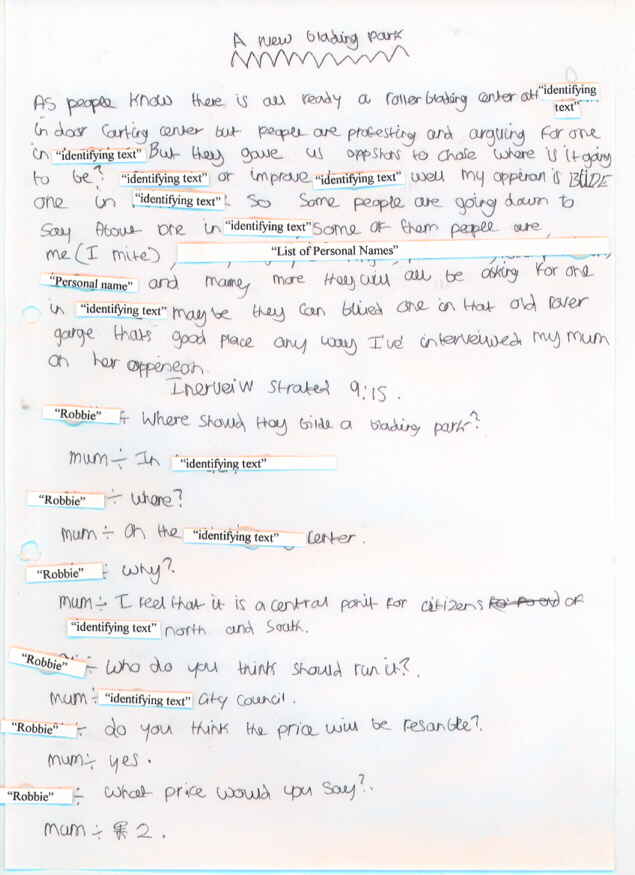 A new blading park
As people know there is all ready a roller blading center att "identifying text"
in door Carting center but people are protesting and arguing for one
in "identifying text" But they gave us oppstons to chose where is it going
to be? "identifying text" or improve "identifying text" well my apperan is BLIDE
one in "identifying text". So Some people are going down to
Say About one in "identifying text" Some of them people are,
me (I mite), "List of Personal Names"
"Personal name" and mamey more they will all be asking for one
in "identifying text" maybe they can blied one in that old
garge thats good place any way I've interveiwed my mum
on her oppeneon.
Inerveiw Strated 9:15.
"Robbie" ÷ Where Should they bilde a blading park?
mum ÷ In "identifying text"
"Robbie" ÷ whare?
mum ÷ On the "identifying text" center.
"Robbie" ÷ why?
mum ÷ I feel that it is a central ponit for citizens of
"identifying text" north and South.
"Robbie" ÷ Who do you think should run it?
mum ÷ "identifying text" City Council.
"Robbie" ÷ do you think the price will be resanble?
mum ÷ yes.
"Robbie" ÷ What price would you Say?
mum ÷ £2.